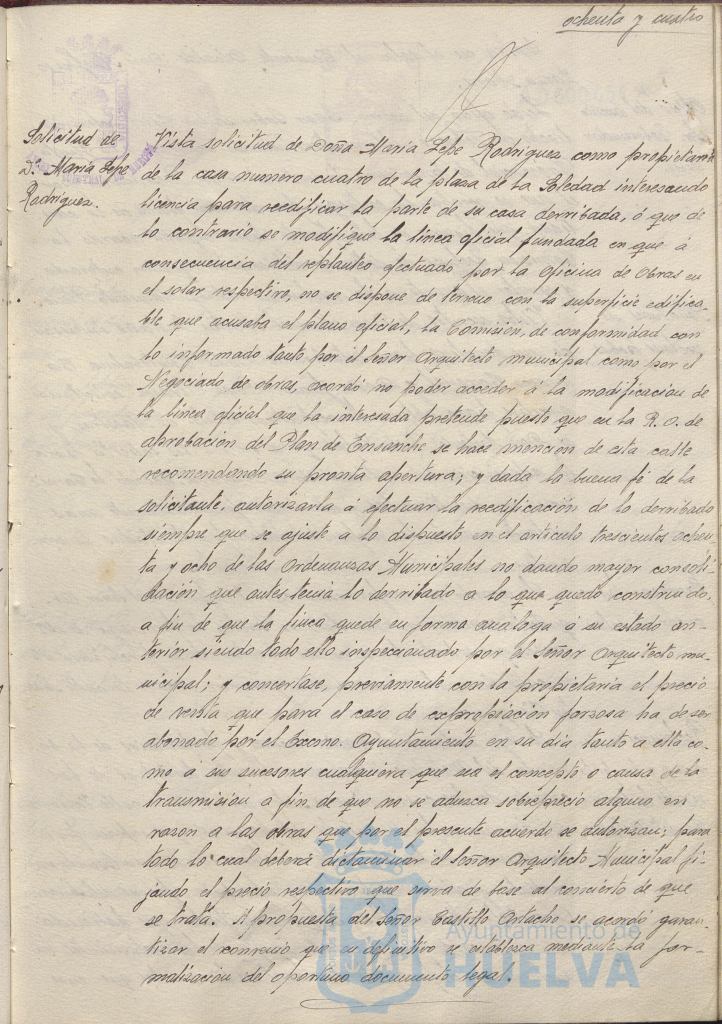 ochenta y cuatro
Solicitud de
Dª María Lepe
Rodríguez.
Vista solicitud de Doña María Lepe Rodríguez como propietaria
de la casa numero cuatro de la plaza de la Soledad interesando
licencia para reedificar la parte de su casa derribada, ó que de
lo contrario se modifique la linea oficial fundada en que á
consecuencia del replanteo efectuado por la oficina de Obras en
el solar respectivo, no se dispone de terreno con la superficie edifica-
ble que acusaba el plano oficial, la Comisión, de conformidad con
lo informado tanto por el Señor Arquitecto municipal como por el
Negociado de obras, acordó no poder acceder á la modificacion de
la linea oficial que la interesada pretende puesto que en la R.O. de
aprobación del Plan de Ensanche se hace mención de esta calle
recomendando su pronta apertura; y dada la buena fé de la
solicitante, autorizarla á efectuar la reedificación de lo derribado
siempre que se ajuste a lo dispuesto en el articulo trescientos ochen-
ta y ocho de las Ordenanzas Municipales no dando mayor consoli-
dación que antes tenia lo derribado a lo que quedo construido,
a fin de que la finca quede en forma análoga á su estado an-
terior siendo todo ello inspeccionado por el Señor Arquitecto mu-
nicipal; y concertase, previamente con la propietaria el precio
de venta que para el caso de expropiación forzosa ha de ser
abonado por el Excmo. Ayuntamiento en su dia tanto a ella co-
mo á sus sucesores cualquiera que sea el concepto o causa de la
transmisión a fin de que no se aduzca sobreprecio alguno en
razon a las obras que por el presente acuerdo se autorizan; para
todo lo cual deberá dictaminar el Señor Arquitecto Municipal fi-
jando el precio respectivo que sirva de base al concierto de que
se trata. A propuesta del Señor Castillo Artacho se acordó garan-
tizar el convenio que en definitivo se establezca mediante la for-
malización del oportuno documento legal.
Ayuntamiento de
HUELVA